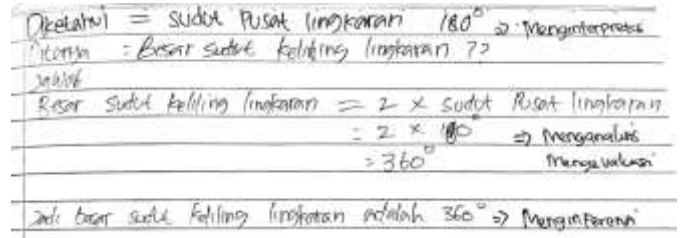 Diketahui = sudut Pusat lingkaran 180° => Menginterpretasi
Ditanya : Besar sudut keliling lingkaran ??
Jawab
Besar sudut keliling lingkaran = 2 x sudut Pusat lingkaran
= 2 x 180° => Menganalisis
= 360° Mengevaluasi
Jadi besar sudut keliling lingkaran adalah 360° => Menginferensi